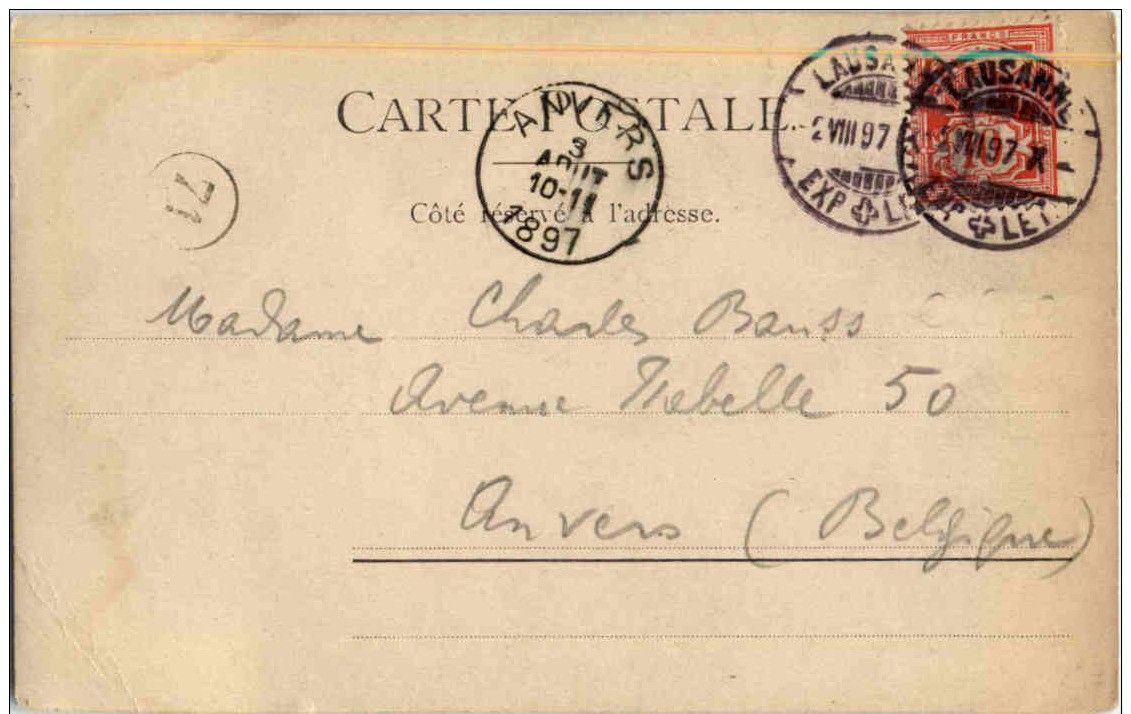 FRANCO
CARTE POSTALE.
Côté réservé à l'adresse.
ANVERS
3
AOUT
10-11
1897
LAUSANNE
2 VIII 97
EXP LET.
LAUSANNE
2 VIII 97 X
EXP LET.
10
71
Madame Charles Banss
Avenue Isabelle 50
Anvers (Belgique)